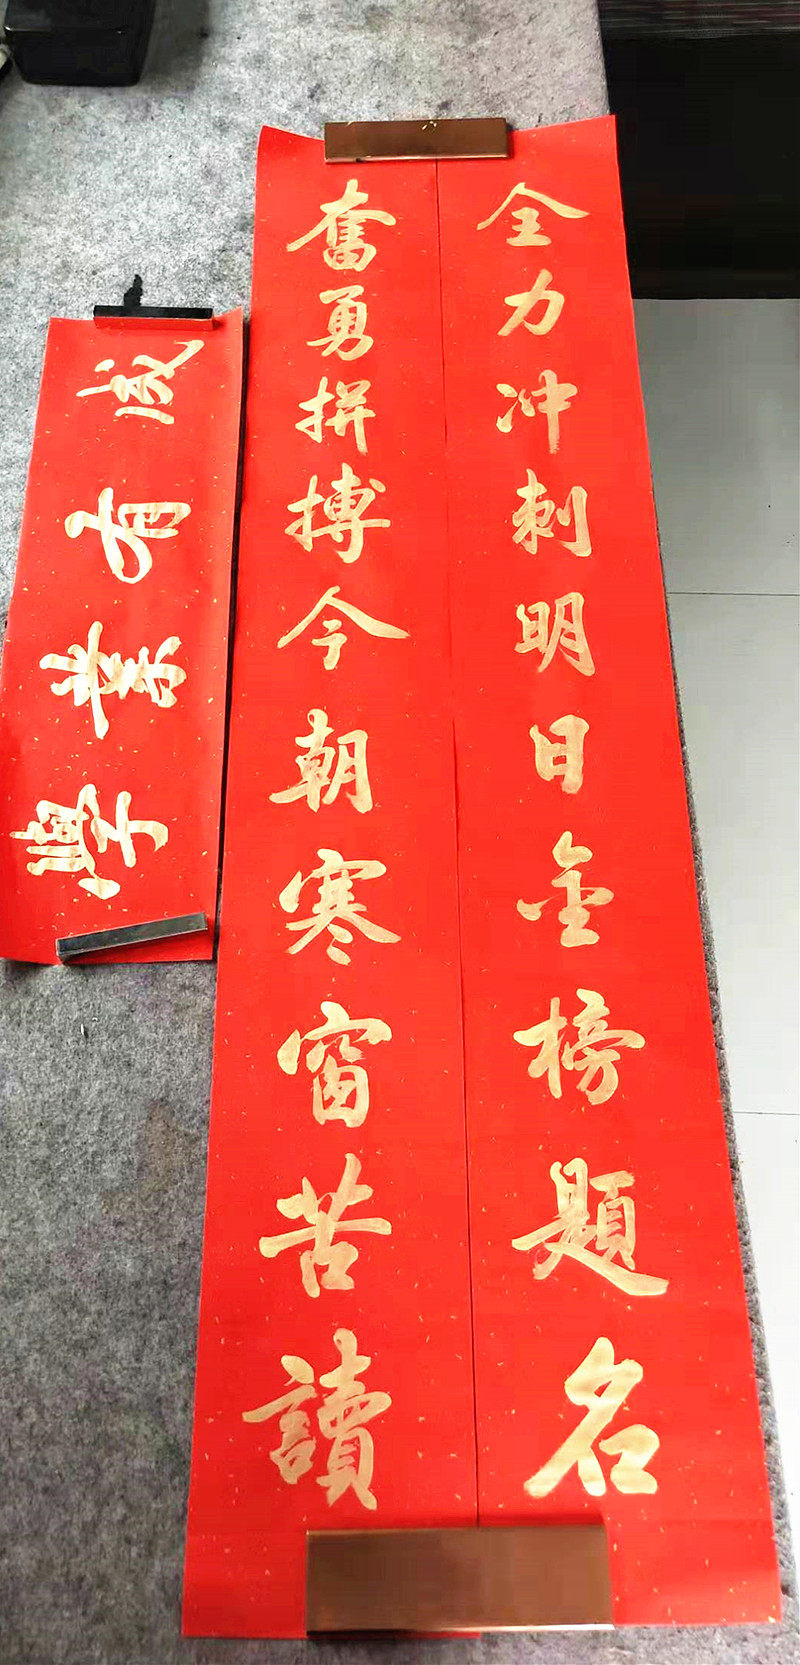 全力冲刺明日金榜題名
奮勇拼搏今朝寒窗苦讀
學業有成